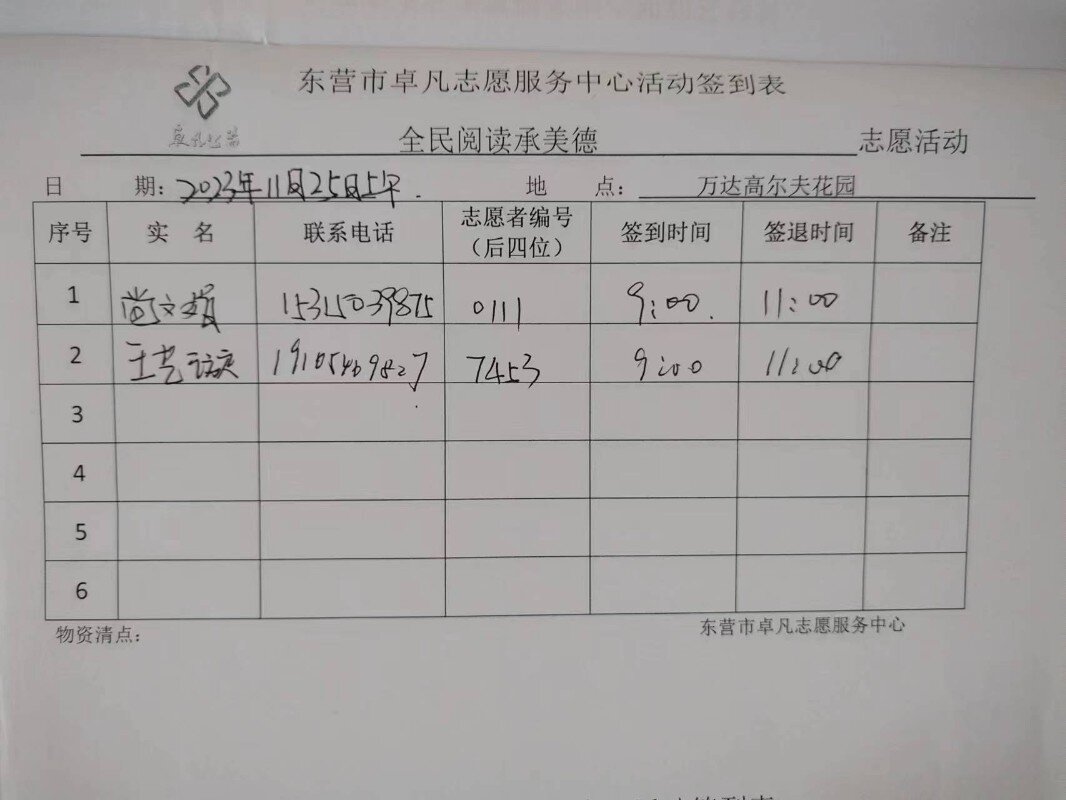 东营市卓凡志愿服务中心活动签到表
卓凡公益
全民阅读承美德 志愿活动
日 期：2023年11月25日上午. 地 点： 万达高尔夫花园
序号 实 名 联系电话 志愿者编号（后四位） 签到时间 签退时间 备注
1 尚文娟 15315039875 0111 9:00. 11:00
2 王艺 19105469827 7453 9:00 11:00
3
4
5
6
物资清点： 东营市卓凡志愿服务中心